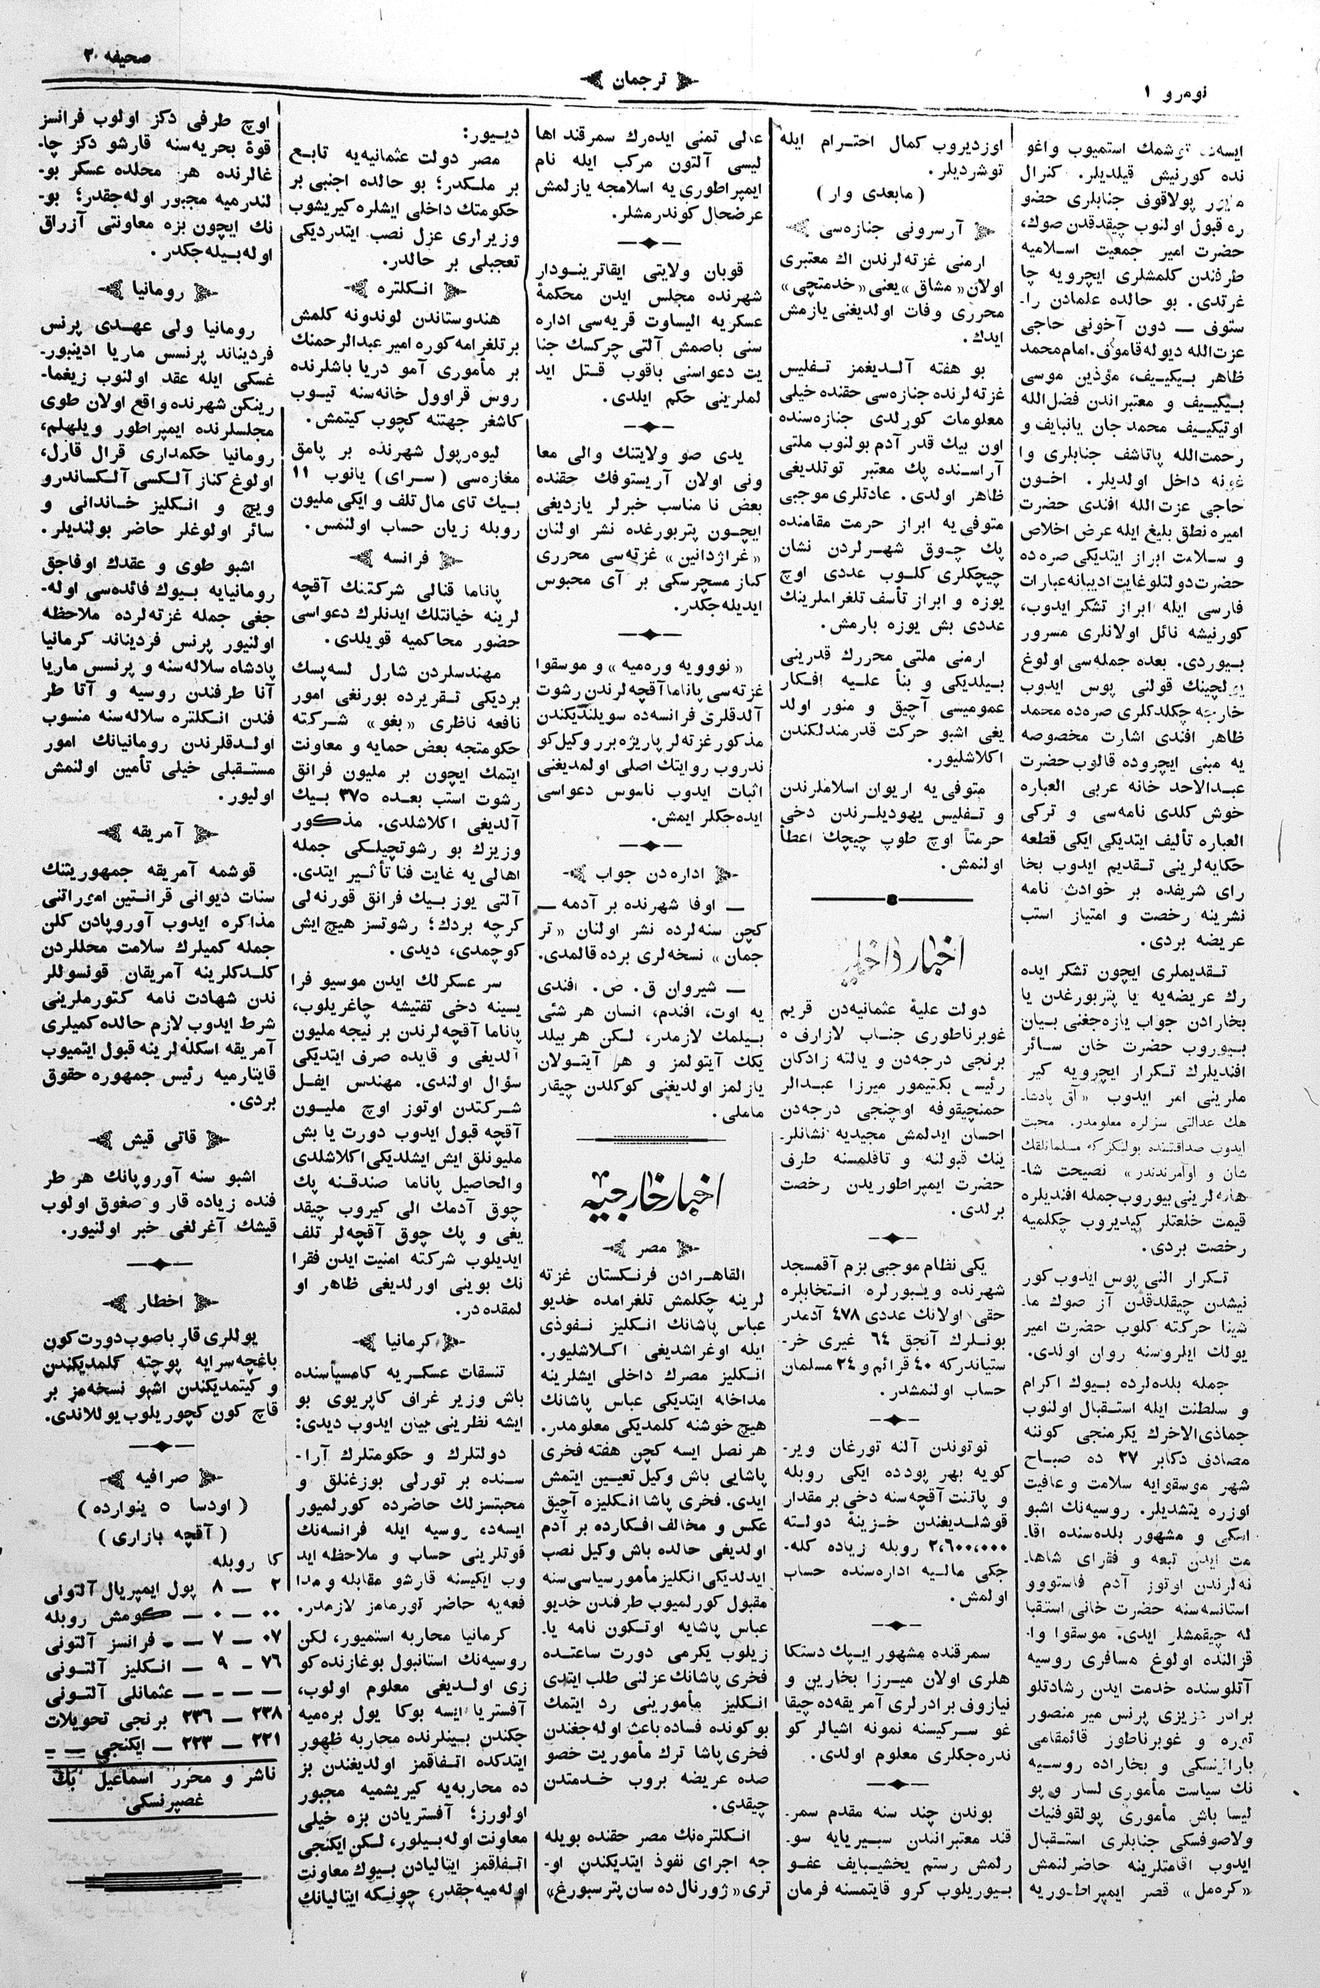 نومرو ١
ترجمان
صحيفه ٣٠
نده كورنيش قيلديلر. كنرال
پولاقوف جنابلرى حضو
ره قبول اولنوب چيقدقدن صوك،
حضرت امير جمعيت اسلاميه
طرفندن كلمشلرى ايچرويه چا
غرتدى. بو حالده علمادن را-
سئوف — دون آخونى حاجى
عزت‌الله ديوله قاموف، امام محمد
ظاهر بيكيف، مؤذين موسى
بيكييف و معتبراندن فضل‌الله
اوتيكييف محمد جان يانبايف و
رحمت‌الله پاتاشف جنابلرى وا
غونه داخل اولديلر. آخون
حاجى عزت‌الله افندى حضرت
اميره نطق بليغ ايله عرض اخلاص
و سلامت ابراز ايتديكى صره‌ده
حضرت دولتلو غايت اديبانه عبارات
فارسى ايله ابراز تشكر ايدوب،
كورنيشه نائل اولانلرى مسرور
بيوردى. بعده جمله‌سى اولوغ
يولچينك قولنى پوس ايدوب
خارجه چكلدكلرى صره‌ده محمد
ظاهر افندى اشارت مخصوصه
يه مبنى ايچروده قالوب حضرت
عبدالاحد خانه عربى العباره
خوش كلدى نامه‌سى و تركى
العباره تأليف ايتديكى ايكى قطعه
حكايه‌لرينى تقديم ايدوب بخا
راى شريفده بر حوادث نامه
نشرينه رخصت و امتياز استب
عريضه بردى.
تقديملرى ايچون تشكر ايده
رك عريضه‌يه يا پتربورغدن يا
بخارادن جواب يازه‌جغنى بيان
بيوروب حضرت خان سائر
افنديلرك تكرار ايچرويه كير
ملرينى امر ايدوب « آق پادشا-
هك عدالتى سزلره معلومدر. محبت
ايدوب صداقتنده بولنكز كه مسلمانلقك
شان و اوامرندندر » نصيحت شا-
هانه‌لرينى بيوروب جمله افنديلره
قيمت خلعتلر كيديروب چكلميه
رخصت بردى.
تكرار الني پوس ايدوب كور
نيشدن چيقلدقدن آز صوك ما-
شينا حركته كلوب حضرت امير
يولك ايلروسنه روان اولدى.
جمله بلده‌لرده بيوك اكرام
و سلطنت ايله استقبال اولنوب
جماذى الاخرك يكرمنجى كوننه
مصادف دكابر ٢٧ ده صباح
شهر موسقوايه سلامت و عافيت
اوزره يتشديلر. روسيه‌نك اشبو
اسكى و مشهور بلده‌سنده اقا-
مت ايدن تبعه و فقراى شاها-
نه‌لرندن اوتوز آدم فاستووو
استانسه‌سنه حضرت خانى استقبا
له چيقمشلر ايدى. موسقوا وا-
قزالنده اولوغ مسافرى روسيه
آتلوسنده خدمت ايدن رشادتلو
برادر عزيزى پرنس مير منصور
توره و غوبرناطوز قائمقامى
بارانينسكى و بخاراده روسيه
نك سياست مأمورى لسار و پو
ليسا باش مأمورى پولقوفنيك
ولاصوفسكى جنابلرى استقبال
ايدوب اقامتلرينه حاضرلنمش
«كره‌مل» قصر ايمپراطوريه
اوزديروب كمال احترام ايله
توشرديلر.
( مابعدى وار )
آرسرونى جنازه‌سى
ارمنى غزته‌لرندن اك معتبرى
اولان « مشاق » يعنى « خدمتچى »
محررى وفات اولديغنى يازمش
ايدك.
بو هفته آلديغمز تفليس
غزته‌لرنده جنازه‌سى حقنده خيلى
معلومات كورلدى جنازه‌سنده
اون بيك قدر آدم بولنوب ملتى
آراسنده پك معتبر توتلديغى
ظاهر اولدى. عادتلرى موجبى
متوفى‌يه ابراز حرمت مقامنده
پك چوق شهرلردن نشان
چيچكلرى كلوب عددى اوچ
يوزه و ابراز تأسف تلغرامارينك
عددى بش يوزه بارمش.
ارمنى ملتى محررك قدرينى
بيلديكى و بناً عليه افكار
عموميسى آچيق و منور اولد
يغى اشبو حركت قدرمندلكندن
اكلاشليور.
متوفى‌يه اريوان اسلاملرندن
و تفليس يهوديلرندن دخى
حرمتاً اوچ طوپ چيچك اعطاً
اولنمش.
اخبار داخليه
دولت عليهٔ عثمانيه‌دن قريم
غوبرناطورى جناب لازارف ه
برنجى درجه‌دن و يالته زادكان
رئيس بكتيمور ميرزا عبدالر
حمنچيقوفه اوچنجى درجه‌دن
احسان ايدلمش مجيديه نشانلر-
ينك قبولنه و تاقلمسنه طرف
حضرت ايمپراطوريدن رخصت
برلدى.
يكى نظام موجبى بزم آقمسجد
شهرنده ويبورلره انتخابلره
حقى اولانك عددى ٤٧٨ آدمدر
بونلرك آنجق ٦٤ غيرى خر-
ستياندركه ٤٠ قرائم و ٢٤ مسلمان
حساب اولنمشدر.
توتوندن آلنه تورغان وير-
كويه بهر پودده ايكى روبله
و پاتنت آقچه‌سنه دخى بر مقدار
قوشلديغندن خزينهٔ دولته
٢،٦٠٠،٠٠٠ روبله زياده كله-
جكى ماليه اداره‌سنده حساب
اولمش.
سمرقنده مشهور ايپك دستكا
هلرى اولان ميرزا بخارين و
نيازوف برادرلرى آمريقه‌ده چيقا
غو سركيسنه نمونه اشيالر كو
ندره‌جكلرى معلوم اولدى.
بوندن چند سنه مقدم سمر-
قند معتبرانندن سبيريايه سو-
رلمش رستم يخشيبايف عفو
بيوريلوب كرو قايتمسنه فرمان
عالى تمنى ايده‌رك سمرقند اها
ليسى آلتون مركب ايله نام
ايمپراطورى‌يه اسلامجه يازلمش
عرضحال كوندرمشلر.
قوبان ولايتى ايقاترينودار
شهرنده مجلس ايدن محكمهٔ
عسكريه اليساوت قريه‌سى اداره
سنى باصمش آلتى چركسك جنا
يت دعواسنى باقوب قتل ايد
لملرينى حكم ايلدى.
يدى صو ولايتنك والى معا
ونى اولان آريستوفك حقنده
بعض نا مناسب خبرلر يازديغى
ايچون پتربورغده نشر اولنان
«غراژدانين» غزته‌سى محررى
كناز مسچرسكى بر آى محبوس
ايديله‌جكدر.
« نووويه وره‌ميه » و موسقوا
غزته‌سى پاناما آقچه‌لرندن رشوت
آلدقلرى فرانسه‌ده سويلنديكندن
مذكور غزته‌لر پاريژه برر وكيل كو
ندروب روايتك اصلى اولمديغنى
اثبات ايدوب ناموس دعواسى
ايده‌جكلر ايمش.
اداره‌دن جواب
— اوفا شهرنده بر آدمه —
كچن سنه‌لرده نشر اولنان « تر
جمان » نسخه‌لرى برده قالمدى.
— شيروان ق. ض. افندى
يه اوت، افندم، انسان هر شئى
بيلمك لازمدر، لكن هر بيلد
يكك آيتولمز و هر آيتولان
يازلمز اولديغنى كوكلدن چيقار
ماملى.
اخبار خارجيه
مصر
القاهرادن فرنكستان غزته
لرينه چكلمش تلغرامده خديو
عباس پاشانك انكليز نفوذى
ايله اوغراشديغى اكلاشليور.
انكليز مصرك داخلى ايشلرينه
مداخاله ايتديكى عباس پاشانك
هيچ خوشنه كلمديكى معلومدر.
هر نصل ايسه كچن هفته فخرى
پاشايى باش وكيل تعيين ايتمش
ايدى. فخرى پاشا انكليزه آچيق
عكس و مخالف افكارده بر آدم
اولديغى حالده باش وكيل نصب
ايدلديكى انكليز مأمور سياسى سنه
مقبول كورلميوب طرفندن خديو
عباس پاشايه اوتكون نامه يا-
زيلوب يكرمى دورت ساعتده
فخرى پاشانك عزلنى طلب ايتدى
انكليز مأمورينى رد ايتمك
بو كونده فساده باعث اوله‌جغندن
فخرى پاشا ترك مأموريت خصو
صده عريضه بروب خدمتدن
چيقدى.
انكلتره‌نك مصر حقنده بويله
جه اجراى نفوذ ايتديكندن او-
ترى « ژورنال ده سان پترسبورغ »
ديیور:
مصر دولت عثمانيه‌يه تابع
بر ملكدر؛ بو حالده اجنبى بر
حكومتك داخلى ايشلره كيريشوب
وزيرلرى عزل نصب ايتدرديكى
تعجبلى بر حالدر.
انكلتره
هندوستاندن لوندونه كلمش
بر تلغرامه كوره امير عبدالرحمنك
بر مأمورى آمو دريا باشلرنده
روس قراوول خانه‌سنه تيوب
كاشغر جهتنه كچوب كيتمش.
ليوه‌رپول شهرنده بر پامق
مغازه‌سى ( سراى ) يانوب ١١
بيك تاى مال تلف و ايكى مليون
روبله زيان حساب اولنمس.
فرانسه
پاناما قنالى شركتنك آقچه
لرينه خيانتلك ايدنلرك دعواسى
حضور محاكميه قويلدى.
مهندسلردن شارل لسه‌پسك
برديكى تقريرده بورنغى امور
نافعه ناظرى « بغو » شركته
حكومتجه بعض حمايه و معاونت
ايتمك ايچون بر مليون فرانق
رشوت استب بعده ٣٧٥ بيك
آلديغى اكلاشلدى. مذكور
وزيرك بو رشوتچيلكى جمله
اهالى‌يه غايت فنا تأثير ايتدى.
آلتى يوز بيك فرانق قورنه‌لى
كرچه بردك؛ رشوتسز هيچ ايش
كوچمدى، ديدى.
سر عسكرلك ايدن موسيو فرا
يسينه دخى تفتيشه چاغريلوب،
پاناما آقچه‌لرندن بر نيجه مليون
آلديغى و قايده صرف ايتديكى
سؤال اولندى. مهندس ايفل
شركتدن اوتوز اوچ مليون
آقچه قبول ايدوب دورت يا بش
مليونلق ايش ايشلديكى اكلاشلدى
والحاصيل پاناما صندقنه پك
چوق آدمك الى كيروب چيقد
يغى و پك چوق آقچه‌لر تلف
ايديلوب شركته امنيت ايدن فقرا
نك بوينى اورلديغى ظاهر او
لمقده در.
كرمانيا
تنسقات عسكريه كامسياسنده
باش وزير غراف كاپريوى بو
ايشه نظرينى بيان ايدوب ديدى:
دولتلرك و حكومتلرك آرا-
سنده بر تورلى بوزغنلق و
محبتسزلك حاضرده كورلميور
ايسه‌د، روسيه ايله فرانسه‌نك
قوتلرينى حساب و ملاحظه ايد
وب ايكيسنه قارشو مقابله و مدا
فعه‌يه حاضر تورمامز لازمدر.
كرمانيا محاربه استميور، لكن
روسيه‌نك استانبول بوغازنده كو
زى اولديغى معلوم اولوب،
آفستريا ايسه بوكا يول بره‌ميه
جكندن بينلرنده محاربه ظهور
ايتدكده اتفاقمز اولديغندن بز
ده محاربه‌يه كيريشميه مجبور
اولورز؛ آفستريادن بزه خيلى
معاونت اوله‌بيلور، لكن ايكنجى
اتفاقمز ايتاليادن بيوك معاونت
اوله‌ميه‌جقدر، چونكه ايتاليانك
اوچ طرفى دكز اولوب فرانسز
قوهٔ بحريه‌سنه قارشو دكز چا-
غالرنده هر محلده عسكر بو-
لندرميه مجبور اوله‌جقدر؛ بو-
نك ايچون بزه معاونتى آزراق
اوله‌بيله‌جكدر.
رومانيا
رومانيا ولى عهدى پرنس
فرديناند پرنسس ماريا ادينبور-
غسكى ايله عقد اولنوب زيغما-
رينكن شهرنده واقع اولان طوى
مجلسلرنده ايمپراطور ويلهلم،
رومانيا حكمدارى قرال قارل،
اولوغ كناز آلكسى آلكساندرو
ويچ و انكليز خاندانى و
سائر اولوغلر حاضر بولنديلر.
اشبو طوى و عقدك اوفاجق
رومانيايه بيوك فائده‌سى اوله-
جغى جمله غزته‌لرده ملاحظه
اولنيور پرنس فرديناند كرمانيا
پادشاه سلاله‌سنه و پرنسس ماريا
آنا طرفندن روسيه و آتا طر
فندن انكلتره سلاله‌سنه منسوب
اولدقلرندن رومانيانك امور
مستقبلى خيلى تأمين اولنمش
اوليور.
آمريقه
قوشمه آمريقه جمهوريتنك
سنات ديوانى قرانتين اموراتنى
مذاكره ايدوب آوروپادن كلن
جمله كميلرك سلامت محللردن
كلدكلرينه آمريقان قونسوللر
ندن شهادت نامه كتورملرينى
شرط ايدوب لازم حالده كميلرى
آمريقه اسكله‌لرينه قبول ايتميوب
قايتارميه رئيس جمهوره حقوق
بردى.
قاتى قيش
اشبو سنه آوروپانك هر طر
فنده زياده قار و صغوق اولوب
قيشك آغرلغى خبر اولنيور.
اخطار
يوللرى قار باصوب دورت كون
باغچه‌سرايه پوچته كلمديكندن
و كيتمديكندن اشبو نسخه‌مز بر
قاچ كون كچوريلوب يوللاندى.
صرافيه
( اودسا ٥ ينوارده )
( آقچه بازارى )
كا روبله
٢ — ٨ پول ايمپريال آلتونى
٠٠ — ٠ — كومش روبله
٠٧ — ٧ — فرانسز آلتونى
٧٦ — ٩ — انكليز آلتونى
— — — عثمانلى آلتونى
٢٣٨ — ٢٣٦ برنجى تحويلات
٢٢١ — ٢٢٣ — ايكنجى — —
ناشر و محرر اسماعيل بك
غصپرنسكى